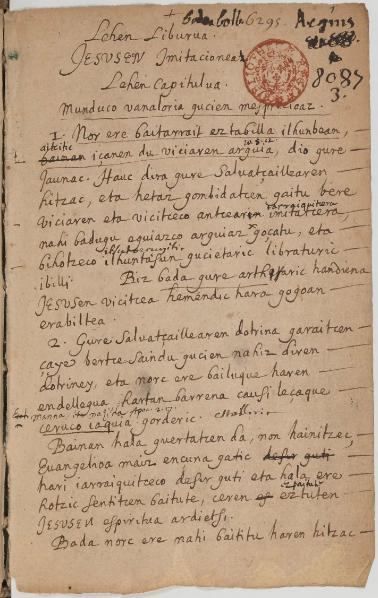 + bada bolla 6295. Reginus
Lehen Liburua.
JESUSEN Imitacioneaz
Lehen Capitulua.
8087
3.
Munduco vanaloria gucien mespreciaz.
1. Nor ere baitarrait eztabilla ilhunbean,
aitcitic io. 8. 12
bainan icanen du viciaren arguia, dio gure
Jaunac. Hauc dira gure Salvatçaillearen
hitzac, eta hetaz gombidatcen gaitu bere
jarraiquitera
viciaren eta vicitceco antcearen imitatcera,
nahi badugu eguiazco arguiaz goçatu, eta
bihotzeco ilhuntasun gucietaric libraturic
ibilli. Biz bada gure arthataric handiena
JESUSen vicitcea hemendic hara gogoan
erabiltea.
2. Gure Salvatçaillearen dotrina garaitcen
çaye bertce Saindu gucien nahiz diren
dotriney, eta norc ere bailuque haren
endellegua hartan barrena causi leçaque
manna
ceruco iaquia gorderic.
Bainan hala guertatcen da, non hainitzec,
Euangelioa maiz encuna gatic desir guti
hari iarraiquitceco desir guti eta hala ere
hotzic sentitzen baitute, ceren ez eztuten
JESUSEN espiritua ardietsi.
Bada norc ere nahi baititu haren hitzac